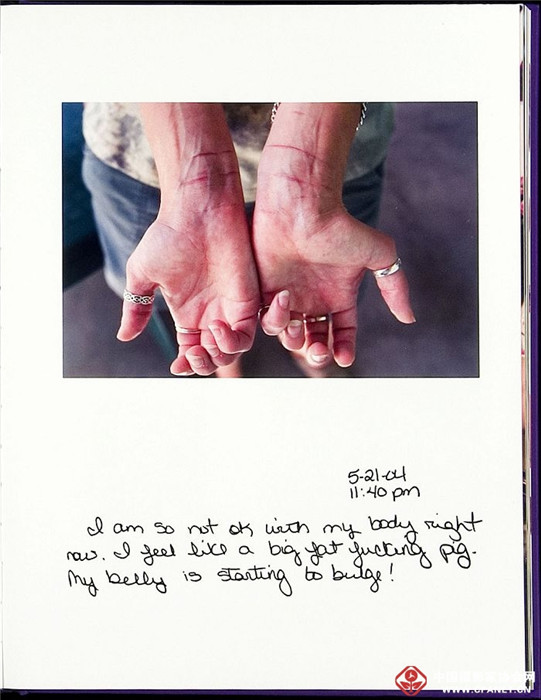 5-21-04
11:40 pm
I am so not ok with my body right
now. I feel like a big fat fucking pig.
My belly is starting to bulge!
WWW.CPANET.CN